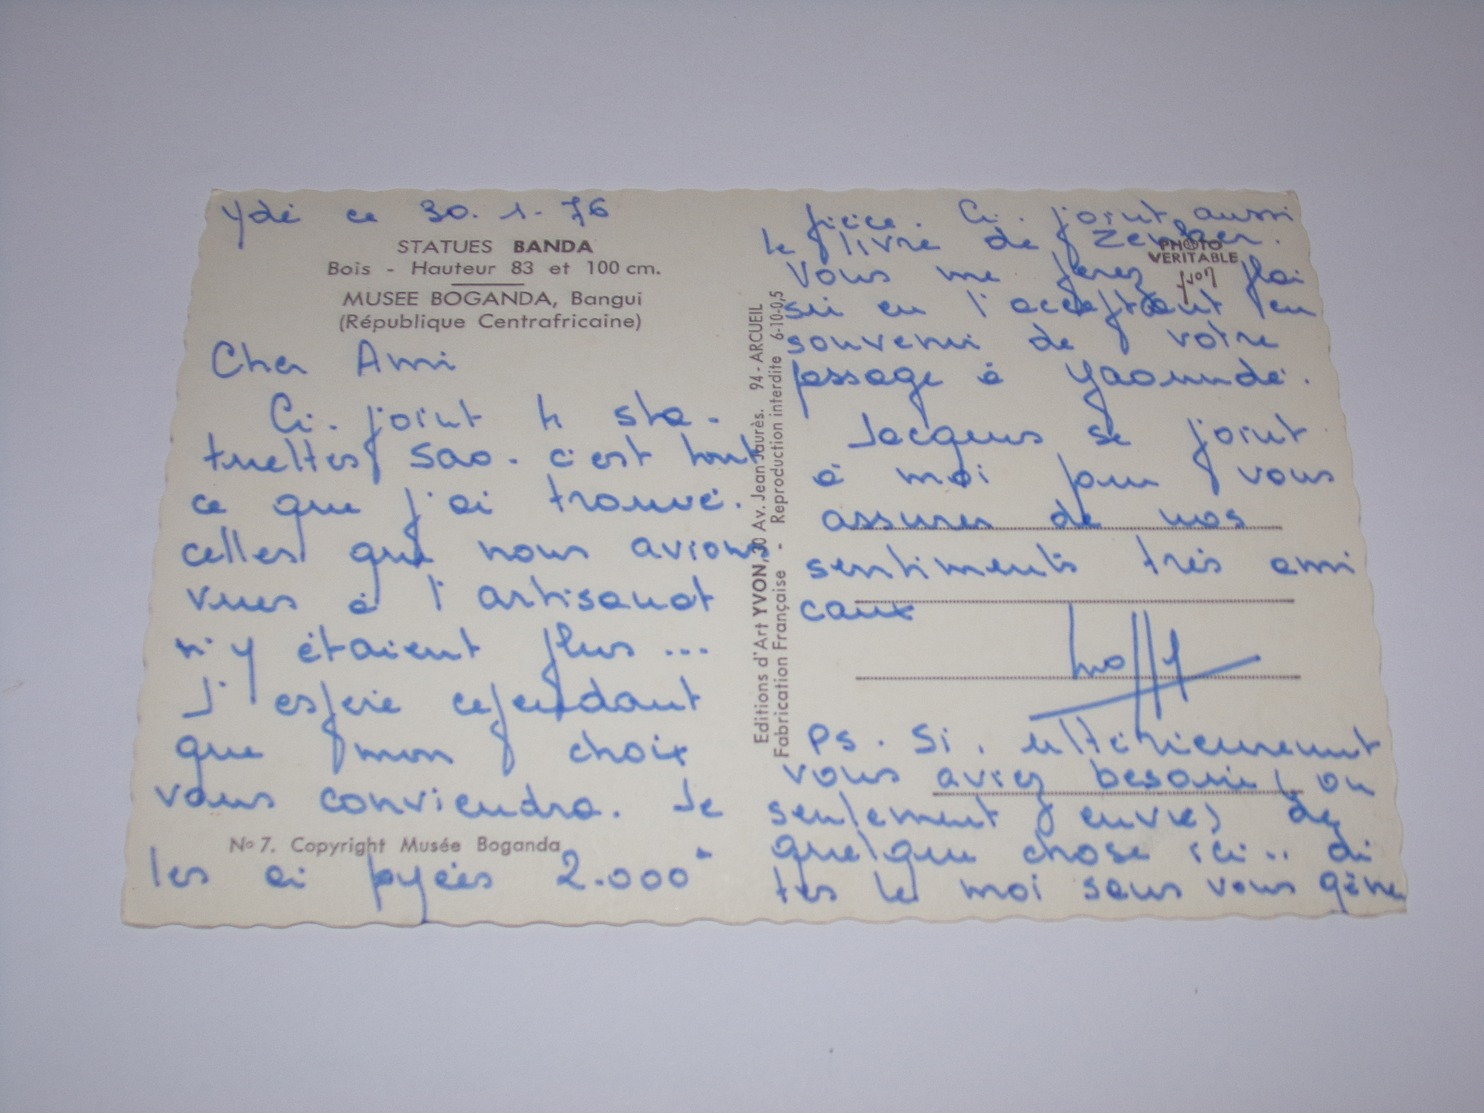 Ydé ce 30. 1. 76
STATUES BANDA
Bois - Hauteur 83 et 100 cm.
MUSEE BOGANDA, Bangui
(République Centrafricaine)
Cher Ami
Ci. joint 4 sta-
tuettes Sao. c'est tout
ce que j'ai trouvé.
celles que nous avions
vues à l'artisanat
n'y étaient plus...
J'espère cependant
que mon choix
vous conviendra. Je
No 7. Copyright Musée Boganda
les ai payées 2.000
Editions d'Art YVON, 30 Av. Jean Jaurès. 94 - ARCUEIL
Fabrication Française - Reproduction interdite 6-10-0,5
pièce. Ci. joint, aussi
le livre de
PHOTO
VERITABLE
yvon
Vous me ferez plai
sir en l'acceptant en
souvenir de votre
passage à Yaoundé.
Jacques se joint
à moi pour vous
assurer de nos
sentiments très ami
caux
PS. Si, ultérieurement
vous aviez besoin (ou
seulement envie) de
quelque chose ici.. di
tes le moi sans vous gêner